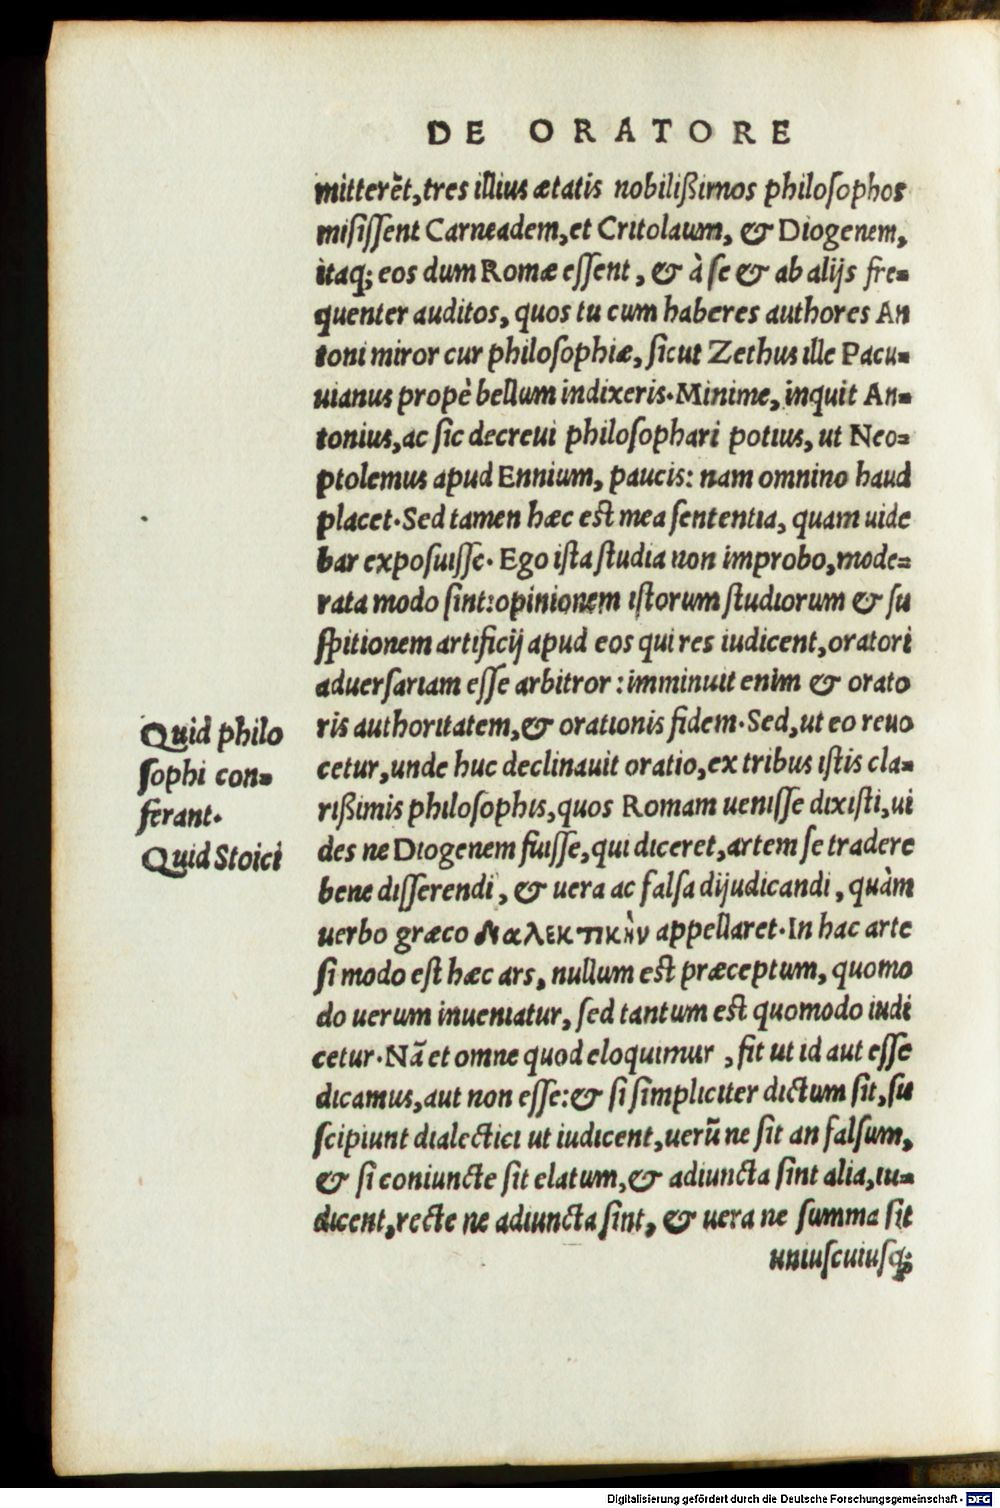 DE ORATORE
mitterẽt, tres illius ætatis nobilißimos philosophos
misissent Carneadem, et Critolaum, & Diogenem,
itaq; eos dum Romæ essent, & à se & ab alijs fre-
quenter auditos, quos tu cum haberes authores An
toni miror cur philosophiæ, sicut Zethus ille Pacu-
uianus propè bellum indixeris. Minime, inquit An-
tonius, ac sic decreui philosophari potius, ut Neo-
ptolemus apud Ennium, paucis: nam omnino haud
placet. Sed tamen hæc est mea sententia, quam uide
bar exposuisse. Ego ista studia non improbo, mode-
rata modo sint: opinionem istorum studiorum & su
spitionem artificij apud eos qui res iudicent, oratori
aduersariam esse arbitror: imminuit enim & orato
ris authoritatem, & orationis fidem. Sed, ut eo reuo
cetur, unde huc declinauit oratio, ex tribus istis cla-
rißimis philosophis, quos Romam uenisse dixisti, ui
des ne Diogenem fuisse, qui diceret, artem se tradere
bene disserendi, & uera ac falsa dijudicandi, quàm
uerbo græco διαλεκτικὴν appellaret. In hac arte
si modo est hæc ars, nullum est præceptum, quomo
do uerum inueniatur, sed tantum est quomodo iudi
cetur. Nã et omne quod eloquimur, fit ut id aut esse
dicamus, aut non esse: & si simpliciter dictum sit, su
scipiunt dialectici ut iudicent, uerũ ne sit an falsum,
& si coniuncte sit elatum, & adiuncta sint alia, iu-
dicent, recte ne adiuncta sint, & uera ne summa sit
uniuscuiusq;
Quid philo
sophi con-
ferant.
Quid Stoici
Digitalisierung gefördert durch die Deutsche Forschungsgemeinschaft - DFG